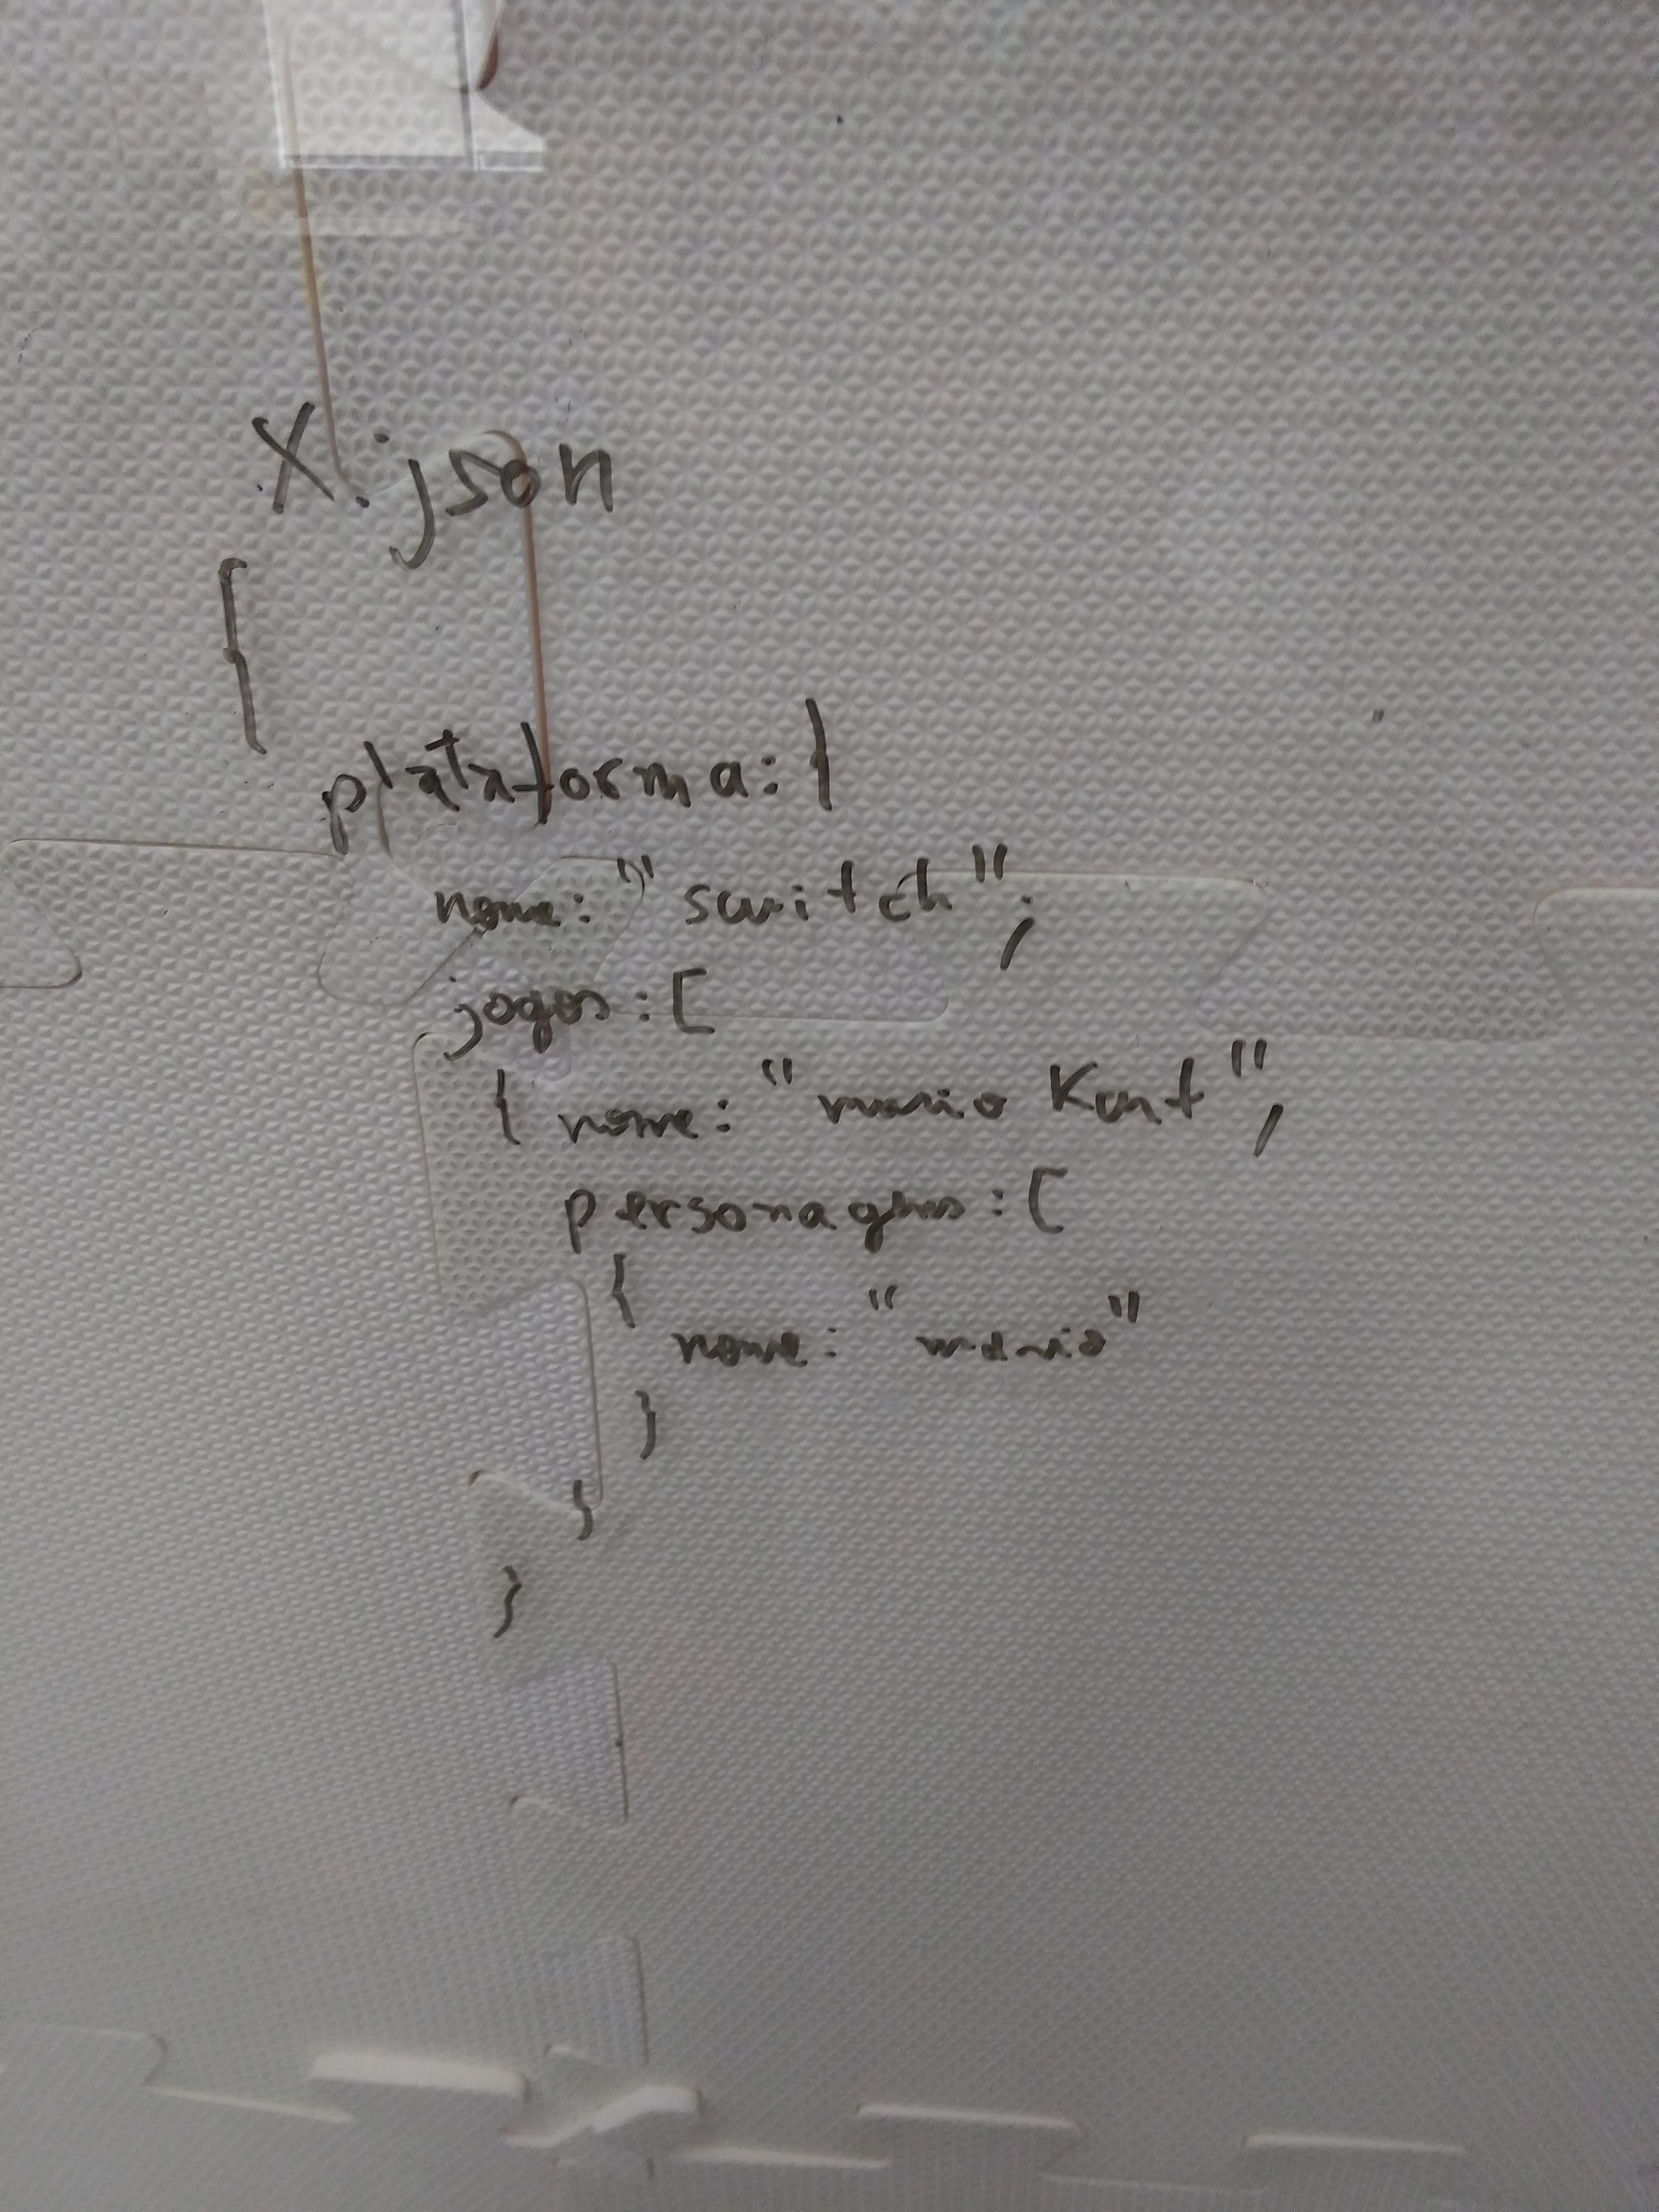 X.json
{
plataforma: {
nome: "switch";
jogos: [
{ nome: "mario Kart",
personagens: [
{
nome: "mario"
}
}
}